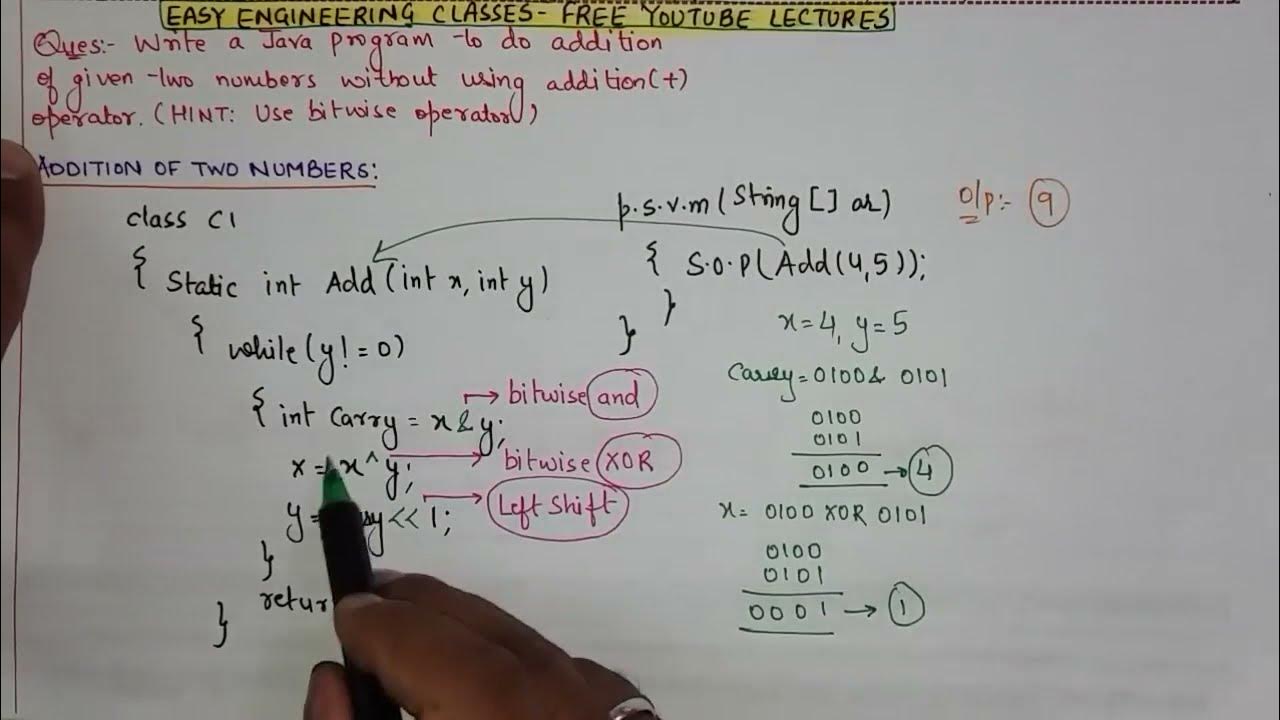 EASY ENGINEERING CLASSES- FREE YOUTUBE LECTURES
Ques:- Write a Java program to do addition
of given two numbers without using addition(+)
operator. (HINT: Use bitwise operator)
ADDITION OF TWO NUMBERS:
class C1
{ Static int Add (int x, int y)
{ while (y! = 0)
{ int Carry = x & y;
x = x ^ y;
y = << 1;
}
}
bitwise and
bitwise XOR
Left Shift
p.s.v.m (String [] ar)
{ S.O.P(Add(4,5));
}
}
O/p:- 9
x=4, y=5
Carry = 0100 & 0101
0100
0101
0100 → 4
x = 0100 XOR 0101
0100
0101
0001 → 1